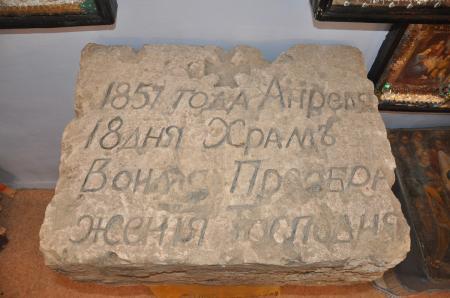 1857 года Апреля
18 дня Храмъ
Во имя Преобра
жения Господня